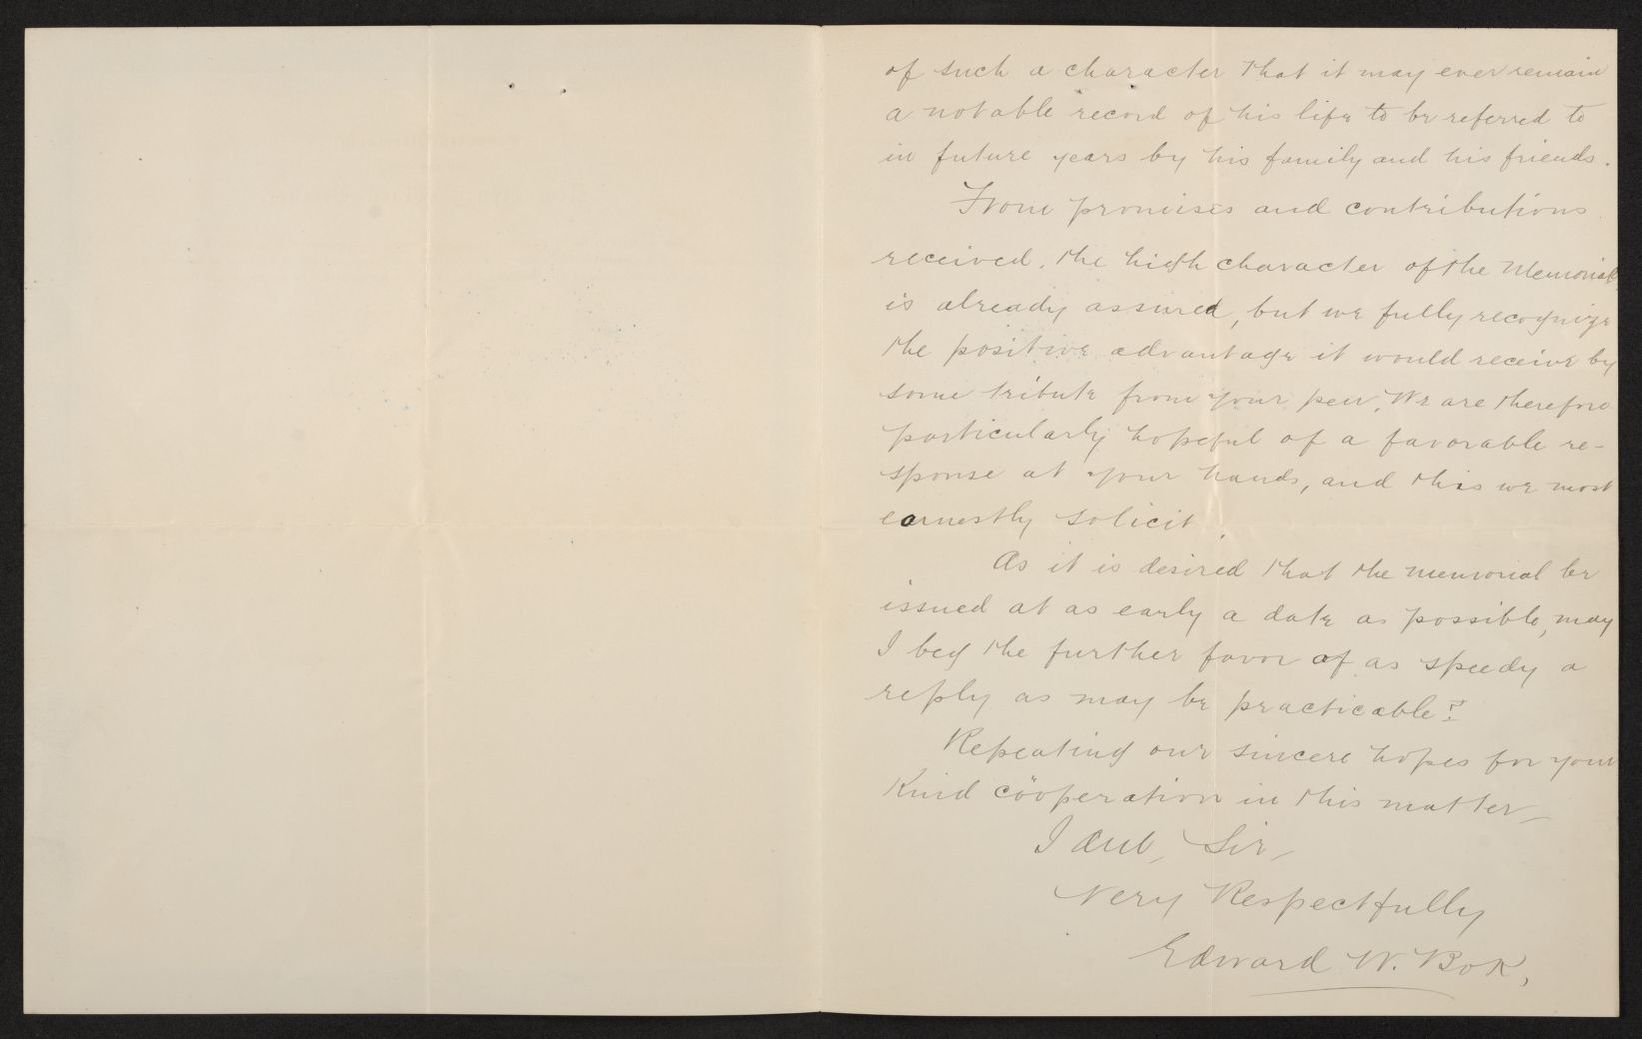 of such a character that it may ever remain
a notable record of his life to be referred to
in future years by his family and his friends.
From promises and contributions
received, the high character of the Memorial
is already assured, but we fully recognize
the positive advantage it would receive by
some tribute from your pen. We are therefore
particularly hopeful of a favorable re-
sponse at your hands, and this we most
earnestly solicit.
As it is desired that the memorial be
issued at as early a date as possible, may
I beg the further favor of as speedy a
reply as may be practicable?
Repeating our sincere hopes for your
kind coöperation in this matter—
I am, Sir,
Very Respectfully
Edward W. Bok,